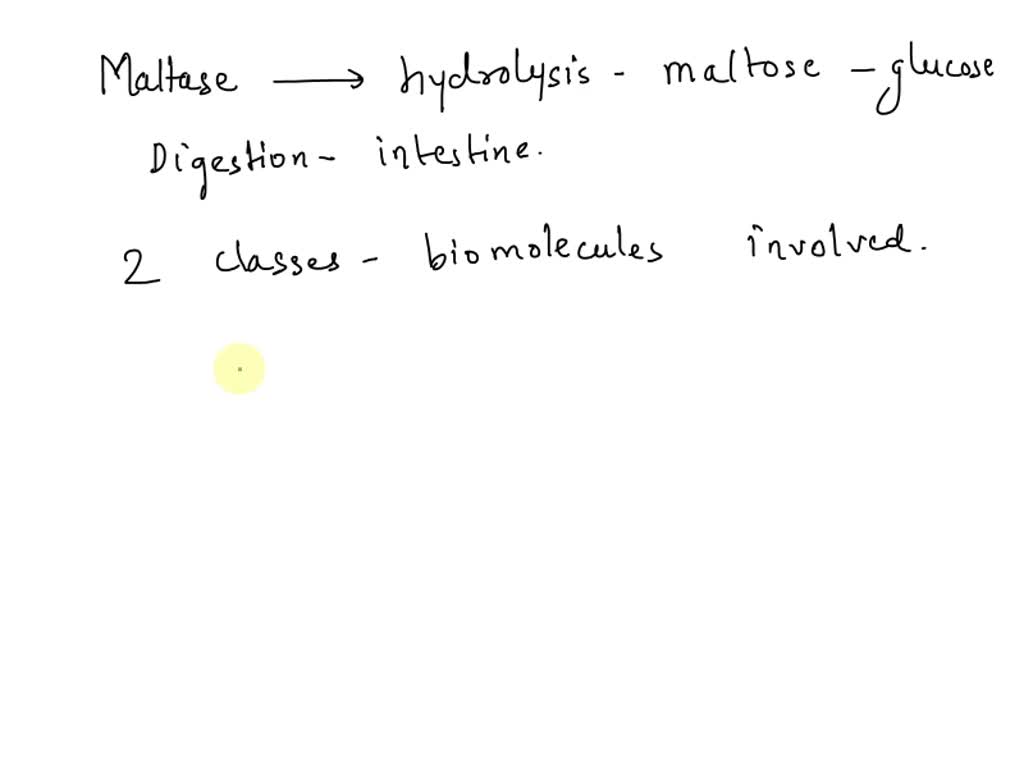 Maltase → hydrolysis - maltose - glucose
Digestion - intestine.
2 classes - biomolecules involved.